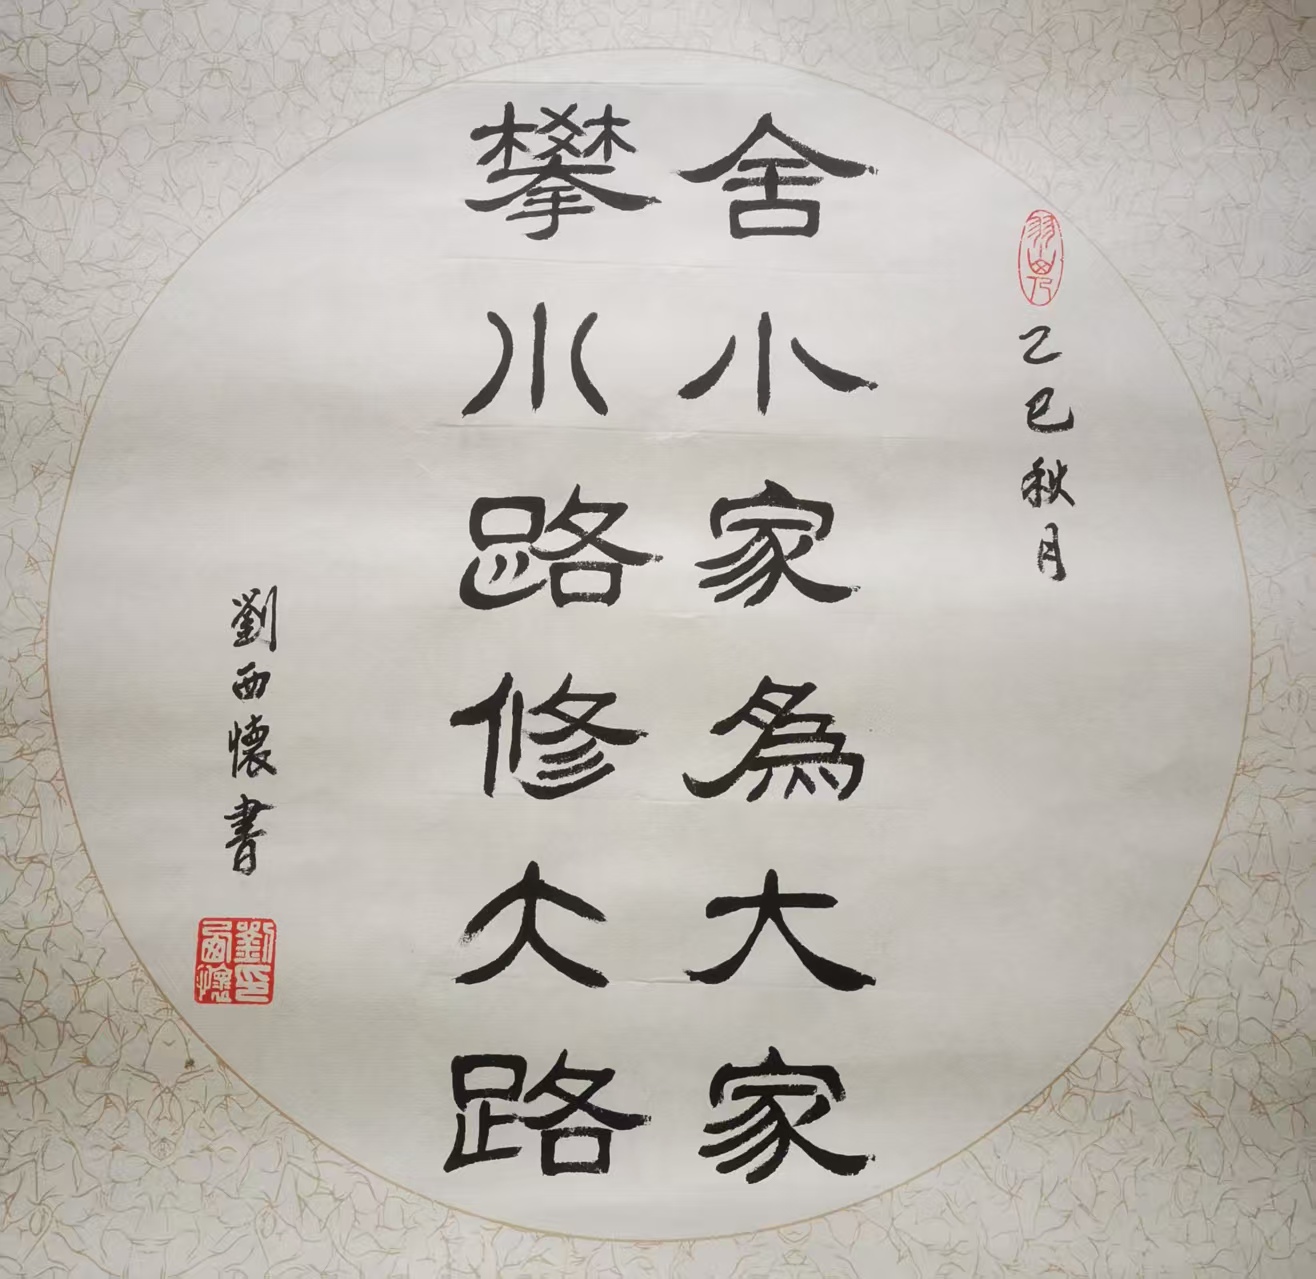 乙巳秋月
舍小家為大家
攀小路修大路
劉西懷書
劉西懷印